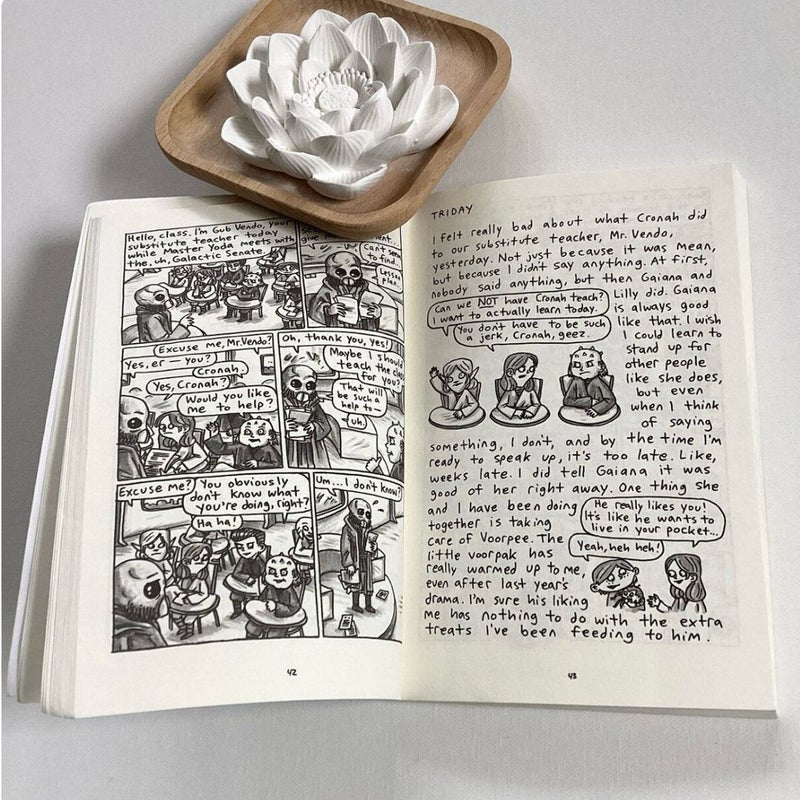 Hello, class. I'm Gub Vendo, your
substitute teacher today
while Master Yoda meets with
the, uh, Galactic Senate.
give
Can't seem
to find
Lesson
plan...
Excuse me, Mr. Vendo?
Yes, er — you?
Cronah.
Yes, Cronah?
Would you like
me to help?
Oh, thank you, yes!
Maybe I should
teach the class
for you?
That will
be such a
help to—
uh.
Excuse me?
You obviously
don't know what
you're doing, right?
Ha ha!
Um... I don't know?
42
TRIDAY
I felt really bad about what Cronah did
to our substitute teacher, Mr. Vendo,
yesterday. Not just because it was mean,
but because I didn't say anything. At first,
nobody said anything, but then Gaiana and
Lilly did. Gaiana
is always good
like that. I wish
I could learn to
stand up for
other people
like she does,
but even
when I think
of saying
Can we NOT have Cronah teach?
I want to actually learn today.
You don't have to be such
a jerk, Cronah, geez.
something, I don't, and by the time I'm
ready to speak up, it's too late. Like,
weeks late. I did tell Gaiana it was
good of her right away. One thing she
and I have been doing
together is taking
care of Voorpee. The
little voorpak has
really warmed up to me,
even after last year's
drama. I'm sure his liking
me has nothing to do with the extra
treats I've been feeding to him.
He really likes you!
It's like he wants to
live in your pocket...
Yeah, heh heh!
43